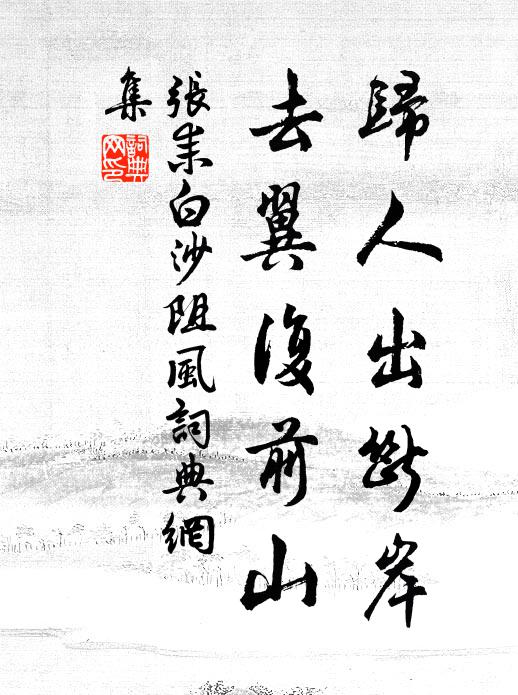 歸人出斷岸
去翼復前山
張耒白沙阻風詞典網
集
詞典
網印